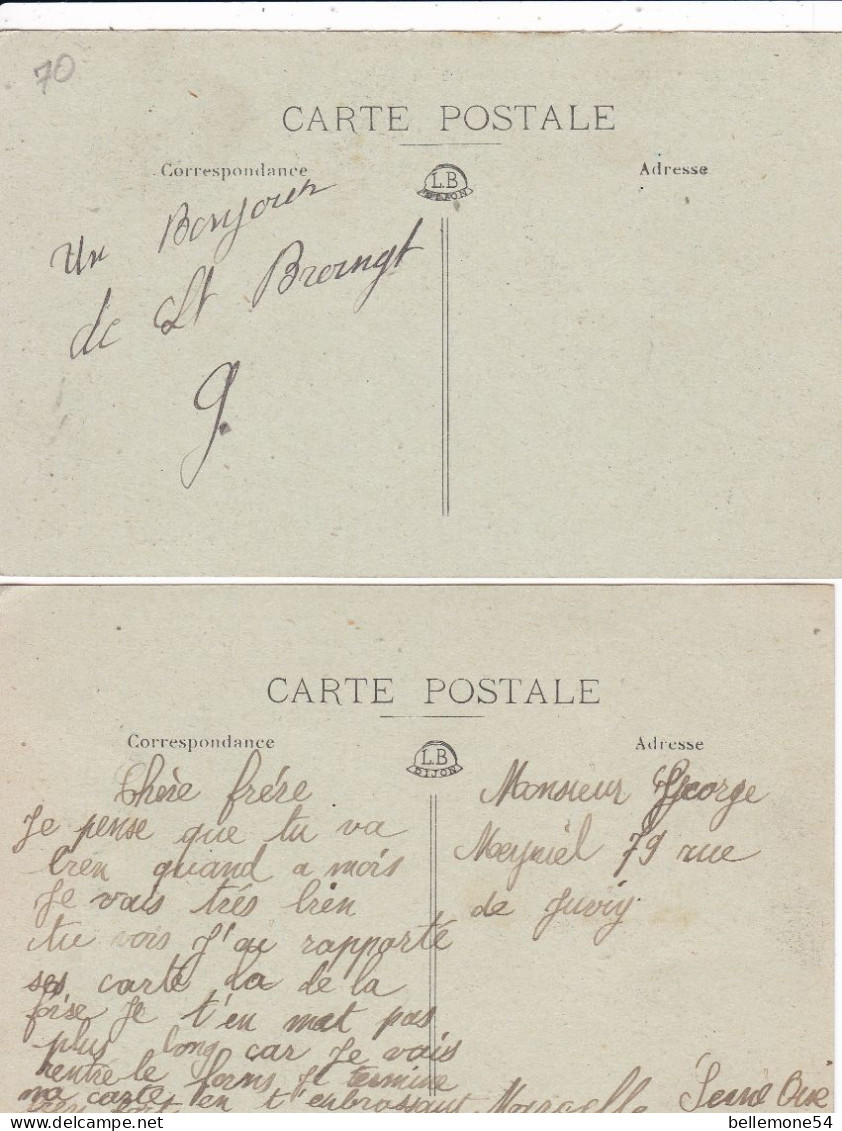 70
CARTE POSTALE
Correspondance
L.B
DIJON
Adresse
Un Bonjour
de St Broingt
G.
CARTE POSTALE
Correspondance
L.B
DIJON
Adresse
Chère frére
Je pense que tu va
bien quand a mois
Je vais trés bien
tu vois J'ai rapporté
ses carte la de la
foise Je t'en met pas
plus long car Je vais
rentré le foins Je termine
ma carte en t'enbrassant
bien fort
Monsieur George
Meyniel 79 rue
de Juviy.
Marcelle
Seine Oise
delcampe.net
bellemone54